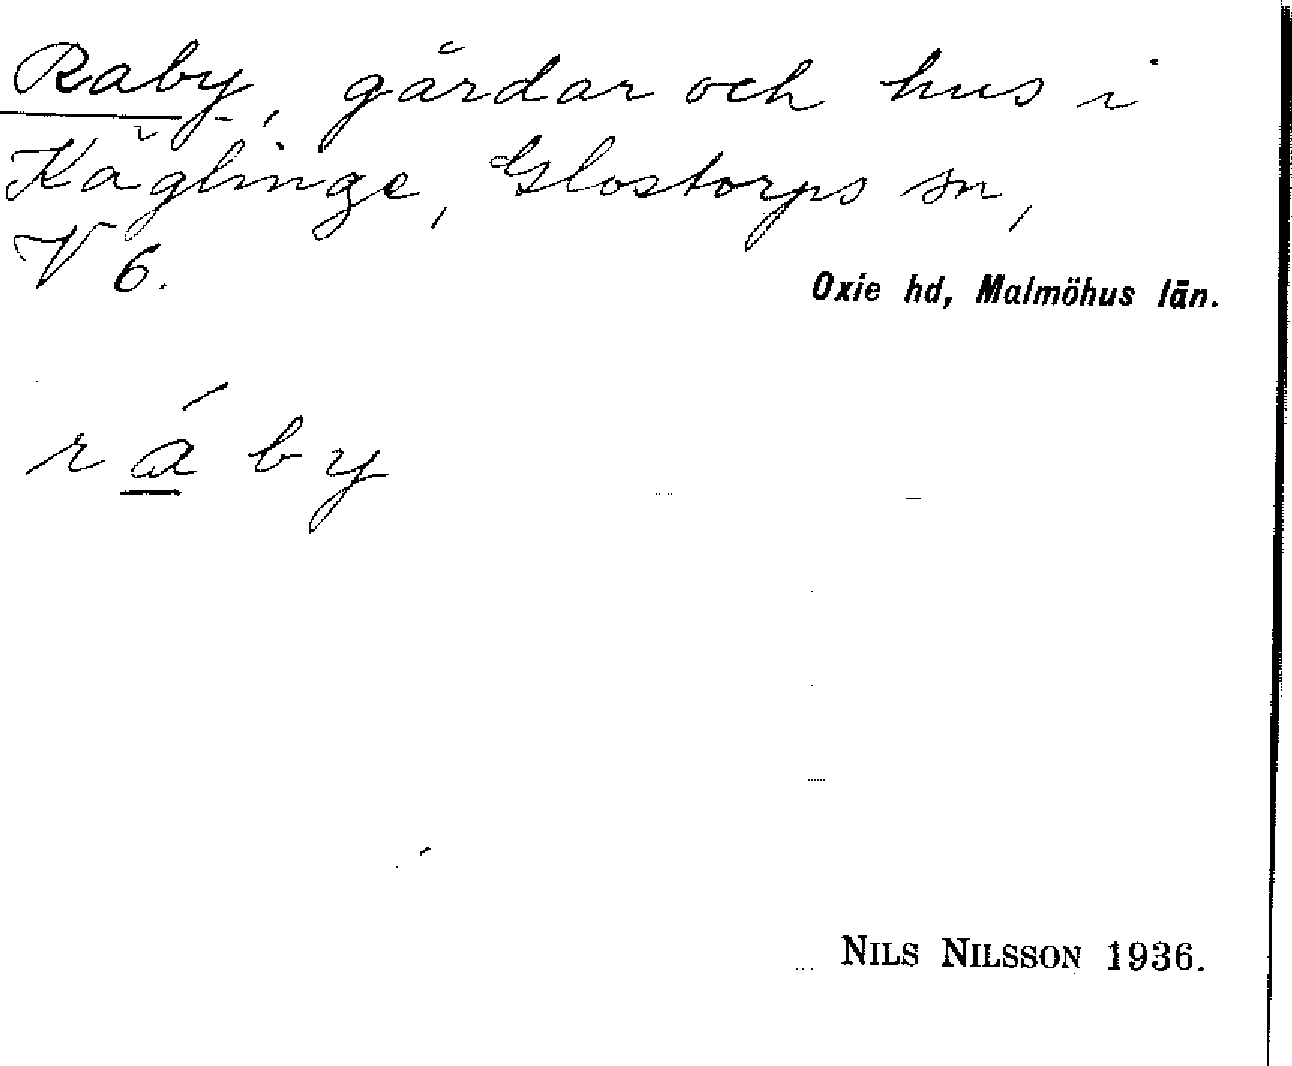 Raby, gårdar och hus i
Käglinge, Glostorps sn,
V 6.
Oxie hd, Malmöhus län.
rá by
NILS NILSSON 1936.